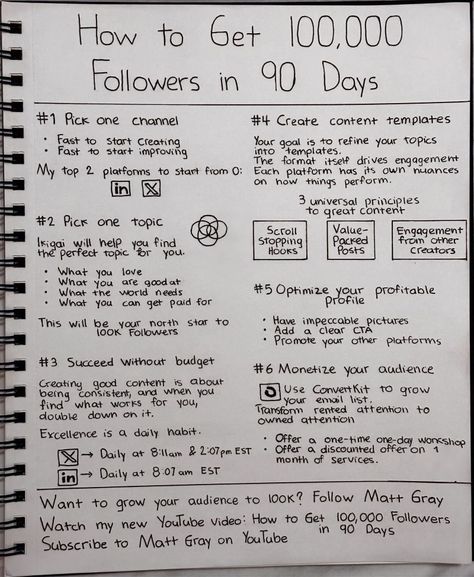 How to Get 100,000
Followers in 90 Days
#1 Pick one channel
• Fast to start creating
• Fast to start improving
My top 2 platforms to start from 0:
in X
#2 Pick one topic
Ikigai will help you find
the perfect topic for you.
• What you love
• What you are good at
• What the world needs
• What you can get paid for
This will be your north star to
100K Followers
#3 Succeed without budget
Creating good content is about
being consistent, and when you
find what works for you,
double down on it.
Excellence is a daily habit.
X → Daily at 8:11am & 2:07pm EST
in → Daily at 8:07am EST
#4 Create content templates
Your goal is to refine your topics
into templates.
The format itself drives engagement
Each platform has its own nuances
on how things perform.
3 universal principles
to great content
Scroll
Stopping
Hooks
Value-
Packed
Posts
Engagement
from other
Creators
#5 Optimize your profitable
profile
• Have impeccable pictures
• Add a clear CTA
• Promote your other platforms
#6 Monetize your audience
Use ConvertKit to grow
your email list.
Transform rented attention to
owned attention
• Offer a one-time one-day workshop
• Offer a discounted offer on 1
month of services.
Want to grow your audience to 100K? Follow Matt Gray
Watch my new YouTube video: How to Get 100,000 Followers
in 90 Days
Subscribe to Matt Gray on YouTube